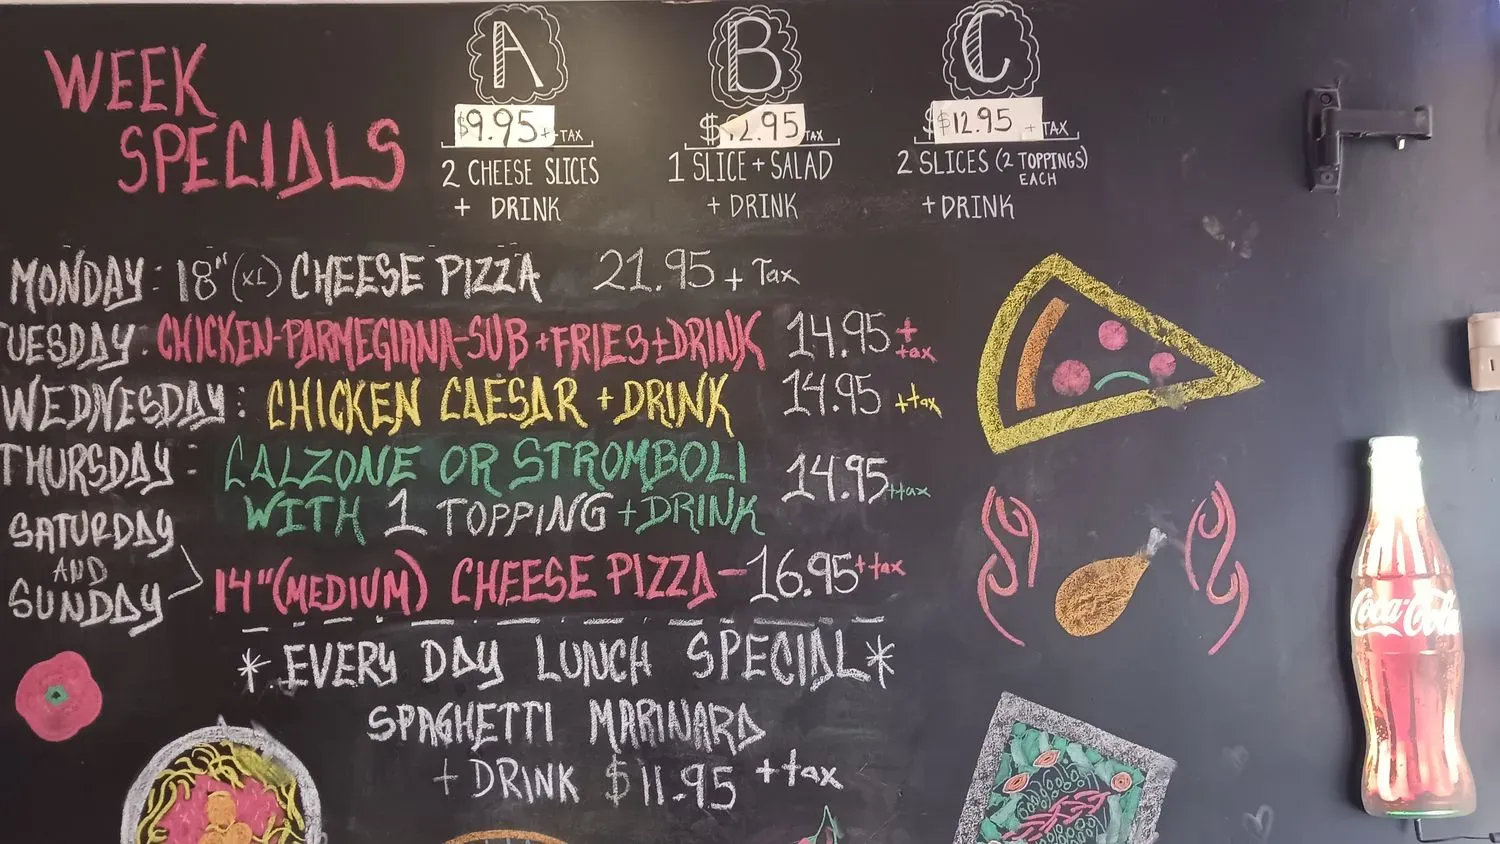 WEEK
SPECIALS
A
$9.95 + TAX
2 CHEESE SLICES
+ DRINK
B
$12.95 TAX
1 SLICE + SALAD
+ DRINK
C
$12.95 + TAX
2 SLICES (2 TOPPINGS)
EACH
+ DRINK
MONDAY: 18" (XL) CHEESE PIZZA 21.95 + Tax
TUESDAY: CHICKEN-PARMEGIANA-SUB + FRIES + DRINK 14.95 + tax
WEDNESDAY: CHICKEN CAESAR + DRINK 14.95 + tax
THURSDAY: CALZONE OR STROMBOLI
WITH 1 TOPPING + DRINK 14.95 + tax
SATURDAY
AND
SUNDAY
14" (MEDIUM) CHEESE PIZZA - 16.95 + tax
* EVERY DAY LUNCH SPECIAL *
SPAGHETTI MARINARA
+ DRINK $11.95 + tax
Coca-Cola